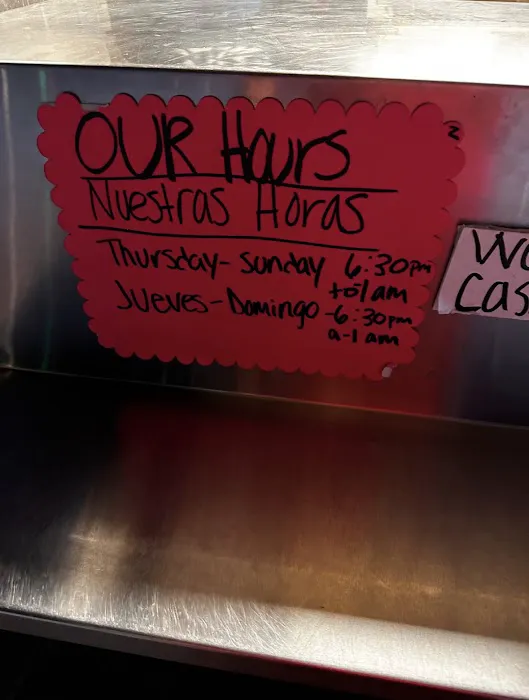 OUR Hours
Nuestras Horas
Thursday-Sunday 6:30pm
to 1 am
Jueves-Domingo -6:30pm
a-1 am